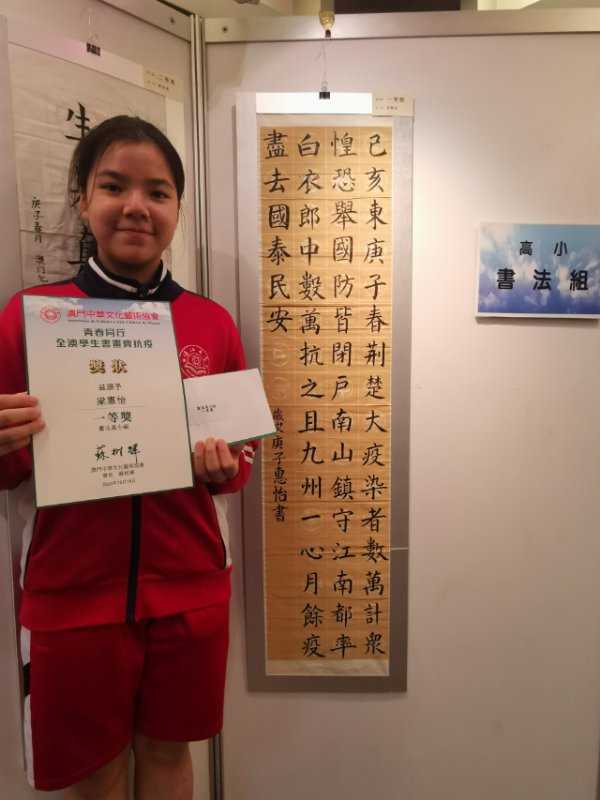 二等獎
生
庚子春月
澳門中華文化藝術協會
青春同行
全澳學生書畫齊抗疫
獎狀
茲頒予
梁惠怡
一等獎
書法高小組
蘇樹輝
澳門中華文化藝術協會
會長 蘇樹輝
一等獎
己亥東庚子春荆楚大疫染者數萬計衆
惶恐舉國防皆閉戶南山鎮守江南都率
白衣郎中數萬抗之且九州一心月餘疫
盡去國泰民安
歲次庚子惠怡書
高小
書法組